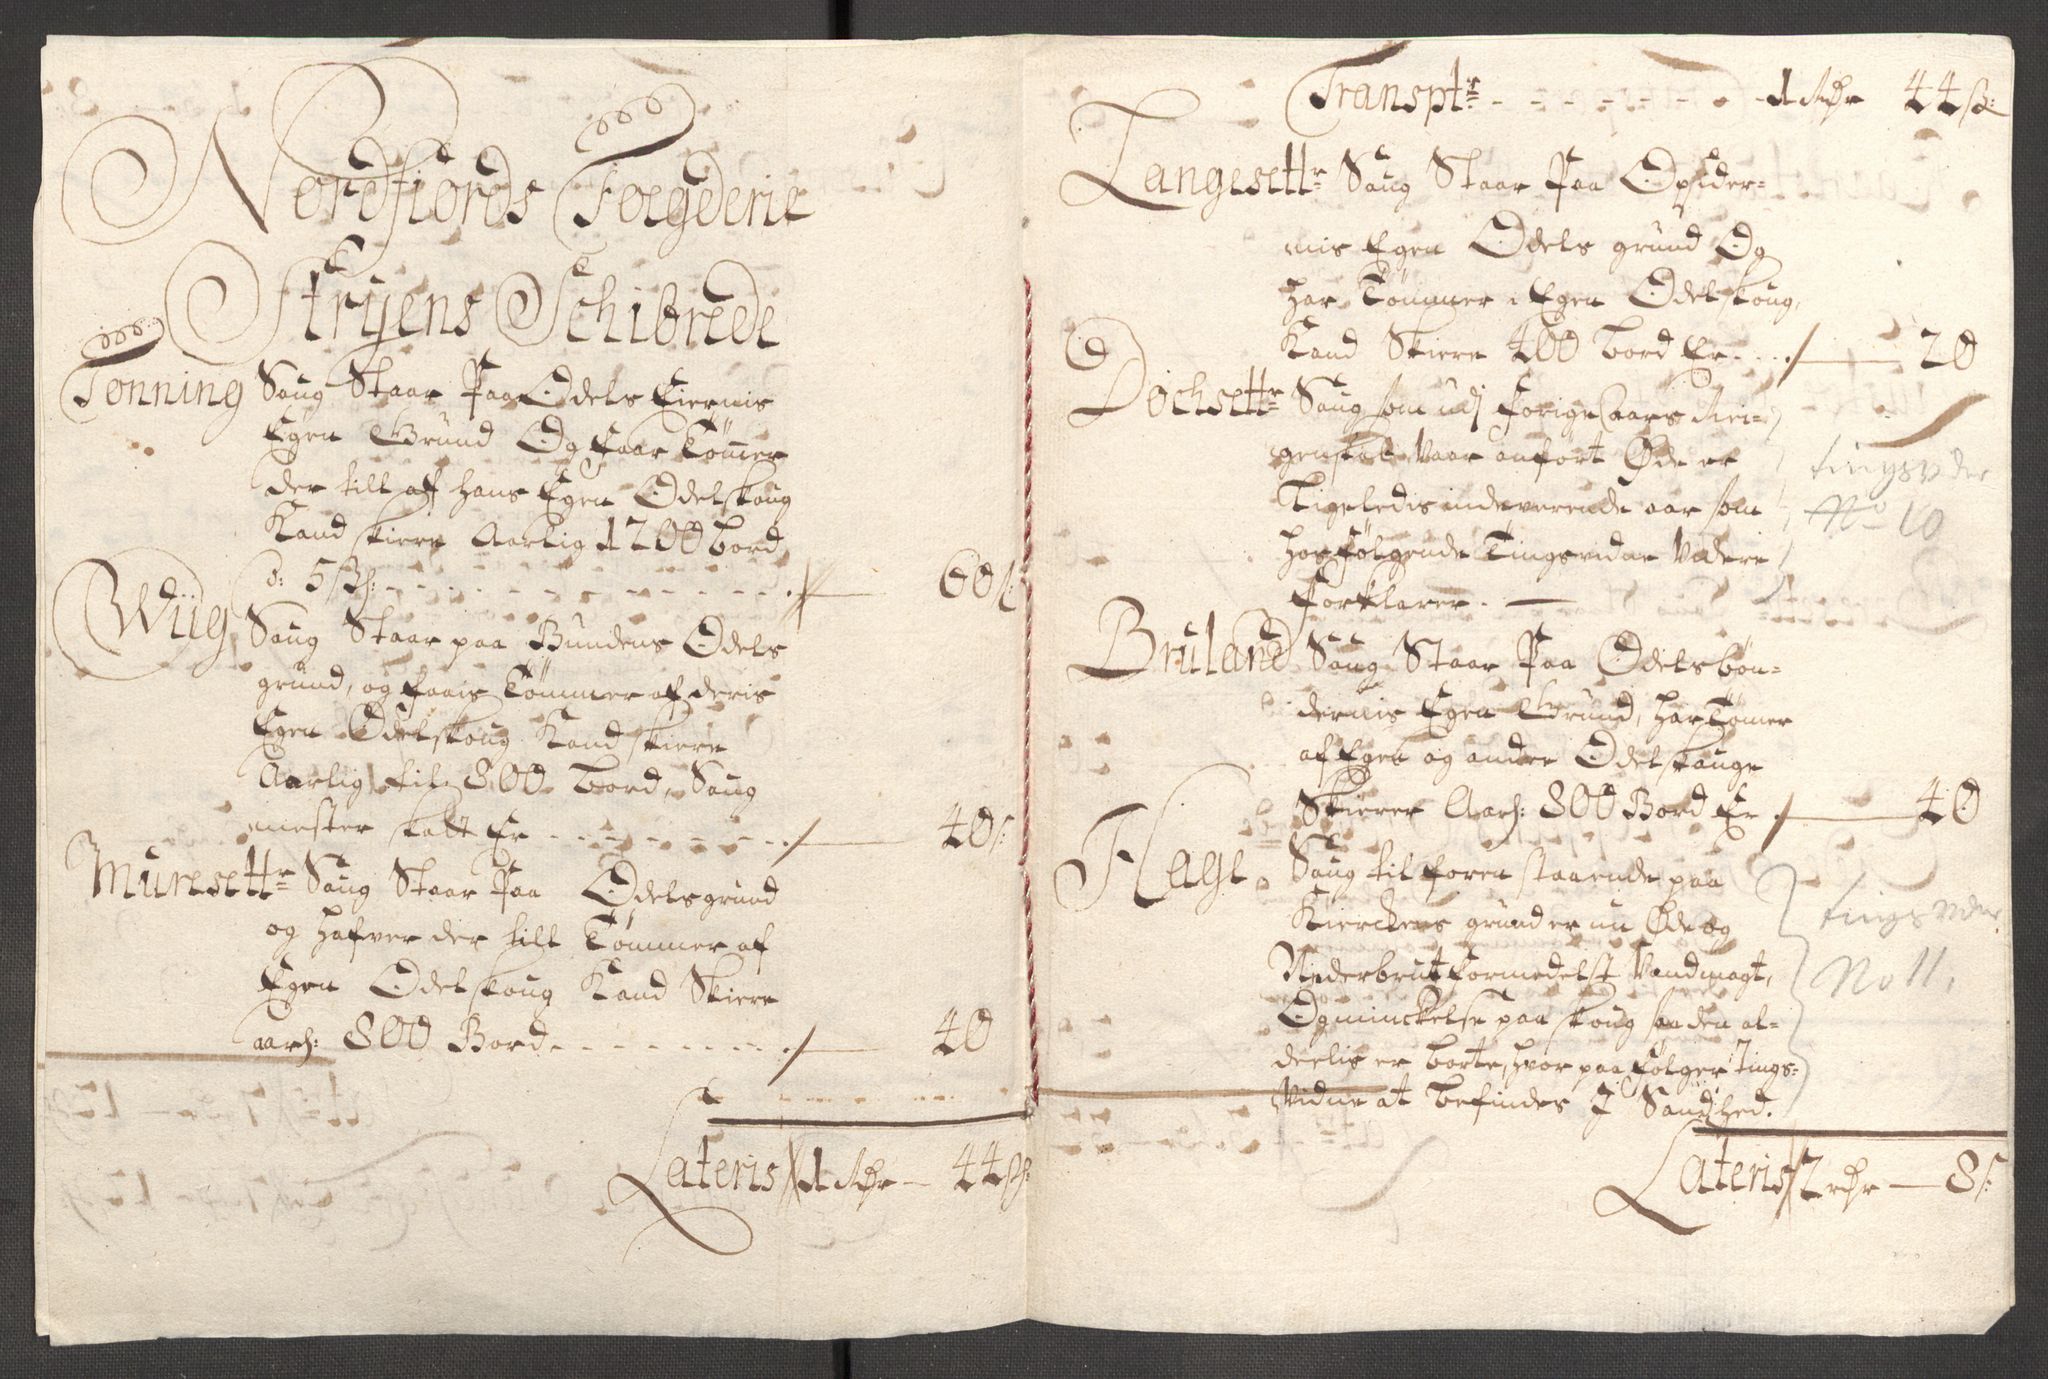 Nordfiords Foegderie
Stryens Schibrede
Tønning Saug Staar Paa Odels Eiernis
Egen Grund Og faar Tømer
der till aff hans Egen Odelskoug
Kand skiere Aarlig 1200 bord
d: 5 ß: 60 s:
Wiig Saug Staar paa Bundens Odels
grund, og faais Tømmer af deris
Egen Odelskoug Kand skiere
Aarlig til 800 bord, Saug
mester skatt Er 40 s:
Muresettr Saug Staar Paa Odelsgrund
og hafver der till Tømmer af
Egen Odelskoug Kand Skiere
aarl: 800 Bord 40
Lateris 1 Rdr 44 sh:
Transptr 1 Rdr 44 ß:
Langesettr Saug Staar Paa Opsider=
nis Egen Odels grund Og
har Tømmer i Egen Odelskoug,
Kand Skiere 400 bord Er 20
Dochsettr Saug som udj forige aars Rei=
genskab Vaar anført Øde er
Ligeledis indeverende aar som
hosfølgende Tingsvidne Videre
forklarer.
tingsvdne
No 10
Bruland Saug Staar Paa Odelsbøn=
dernis Egen Grund, har Tømer
af Egen og andre Odelskouge
Skierer Aarl: 800 Bord Er 40
Hage Saug til foren staaende paa
Kierckens grund er nu Øde og
Nederbrut formedelst Vandmagt,
Og minckelse paa skoug saa den al=
deelis er borte, hvor paa følger Tings=
Vidne at befindes I Sandhed.
tingsvdne
No 11,
Lateris 2 rdr 8 s: